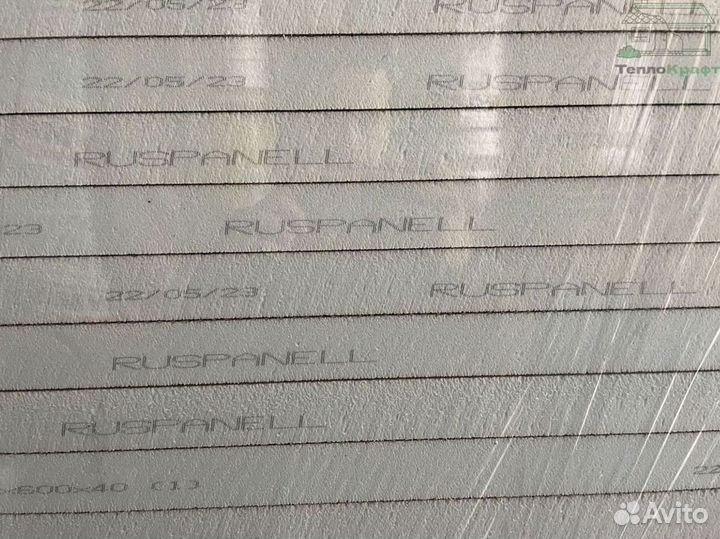 22/05/23 RUSPANELL
ТеплоКрафт
22/05/23 RUSPANELL
RUSPANELL
23 RUSPANELL
22/05/23 RUSPANELL
RUSPANELL
RUSPANELL
22
x600x40 (1)
Avito